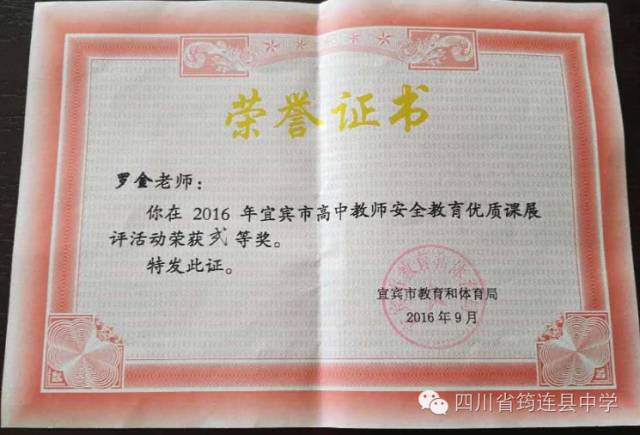 荣誉证书
罗金老师：
你在 2016 年宜宾市高中教师安全教育优质课展
评活动荣获贰等奖。
特发此证。
宜宾市教育和体育局
2016年9月
四川省筠连县中学